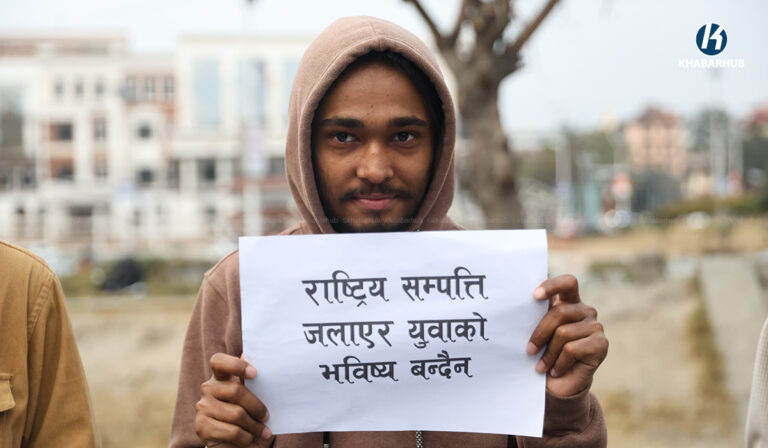 KHABARHUB
राष्ट्रिय सम्पत्ति
जलाएर युवाको
भविष्य बन्दैन